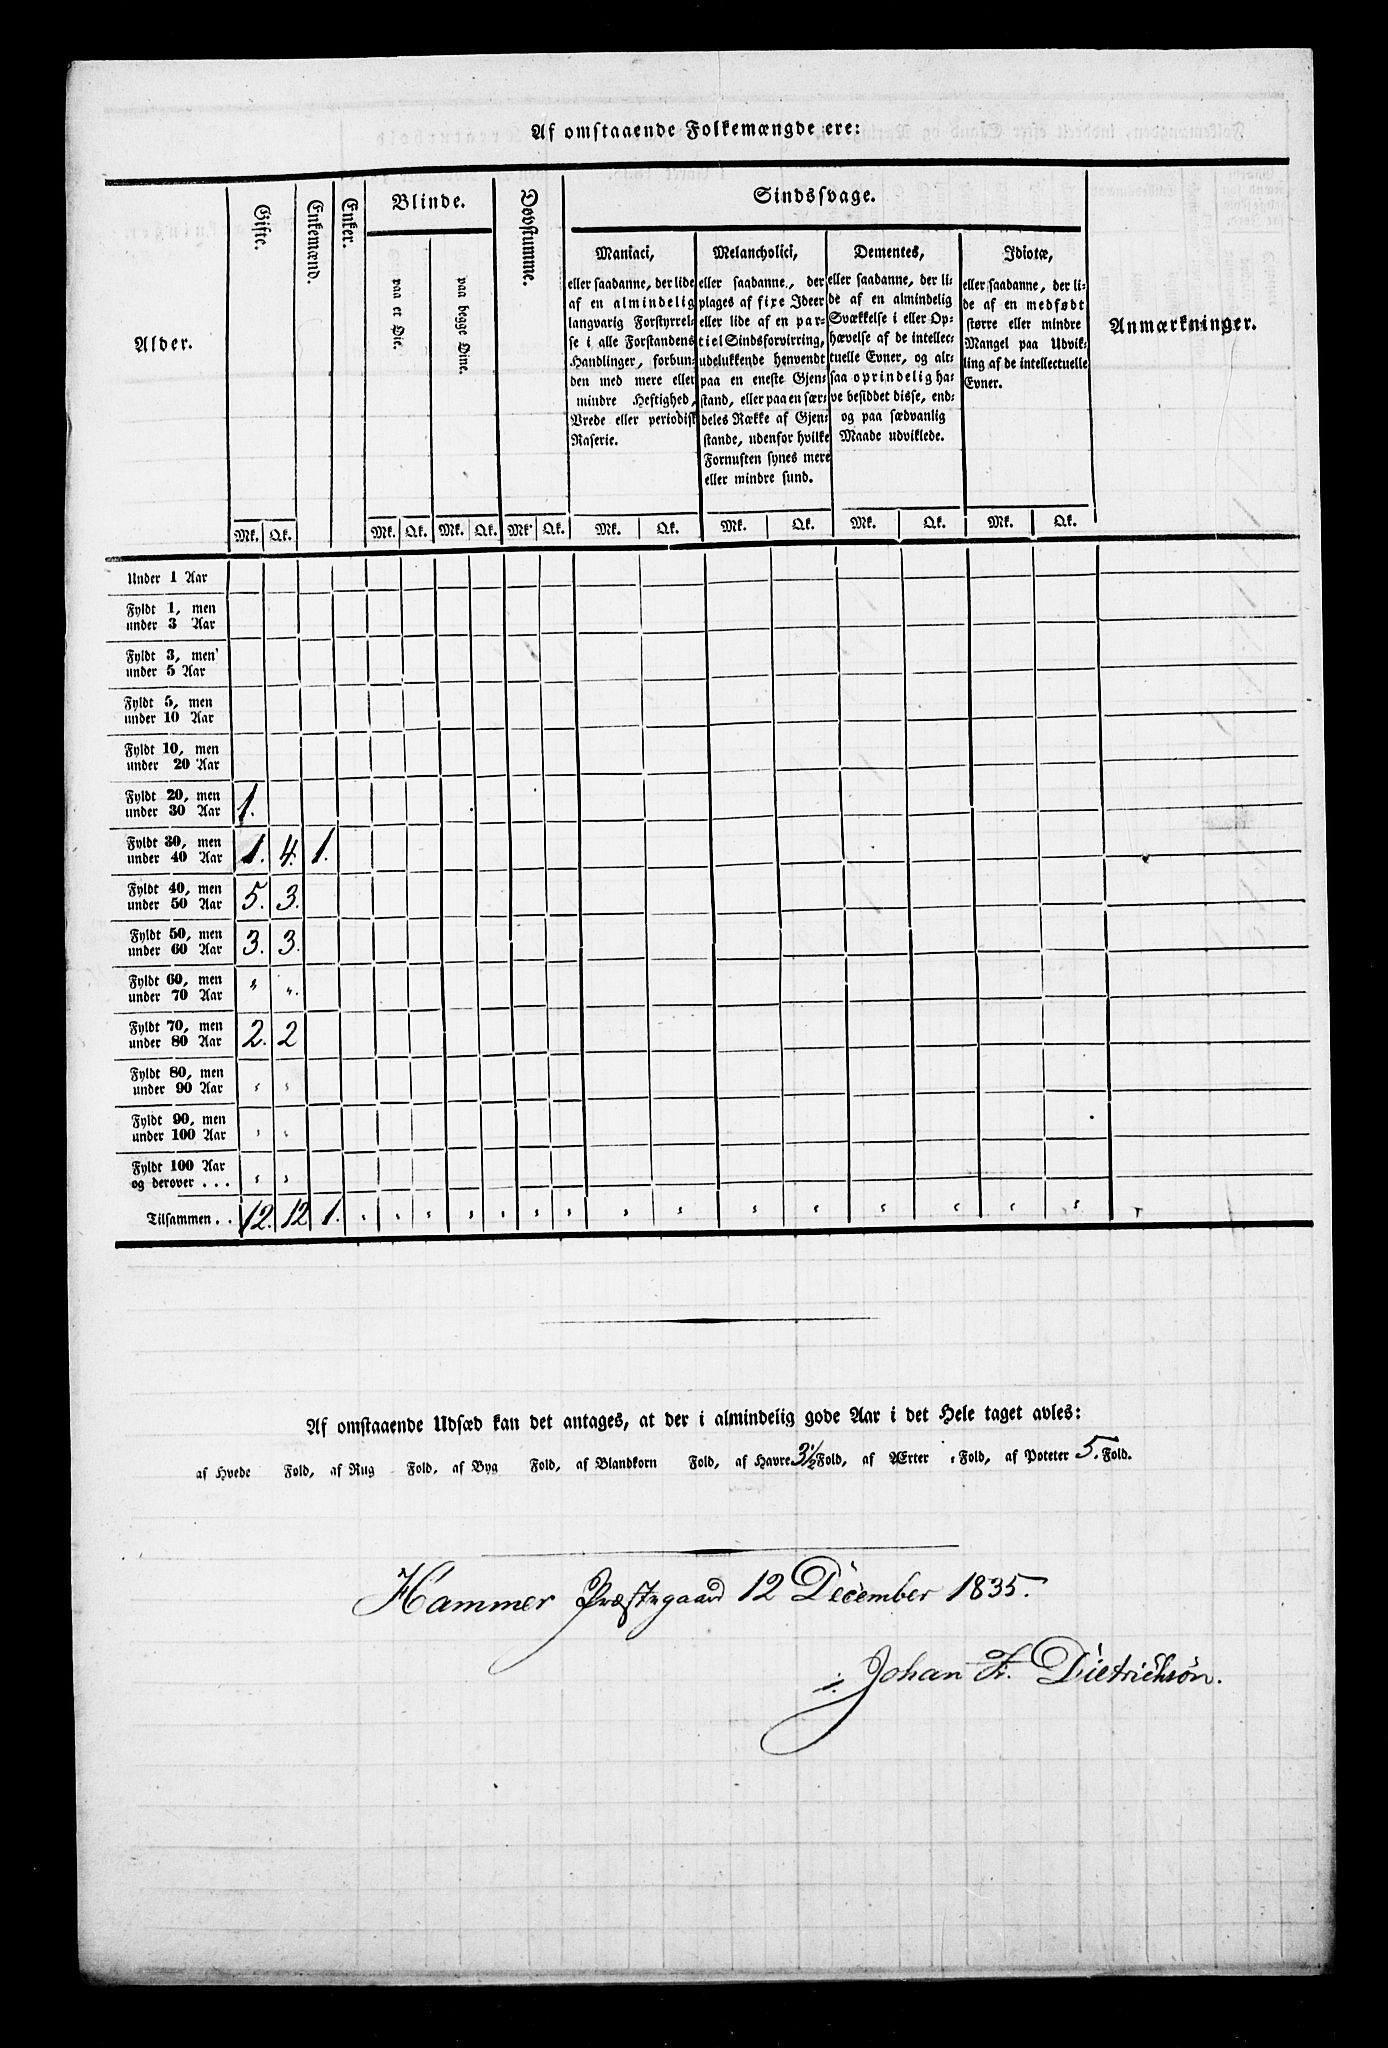 Af omstaaende Folkemængde ere:
Alder.
Gifte.
Enkemænd.
Enker.
Blinde.
paa et Øie.
paa begge Øine.
Døvstumme.
Sindssvage.
Maniaci,
eller saadanne, der lide
af en almindelig
langvarig Forstyrrel-
se i alle Forstandens
Handlinger, forbun-
den med mere eller
mindre Heftighed,
Vrede eller periodisk
Raserie.
Melancholici,
eller saadanne, der
plages af fixe Ideer
eller lide af en par-
tiel Sindsforvirring,
udelukkende henvendt
paa en eneste Gjen-
stand, eller paa en sær-
deles Række af Gjen-
stande, udenfor hvilke
Fornuften synes mere
eller mindre sund.
Dementes,
eller saadanne, der li-
de af en almindelig
Svækkelse i eller Op-
hævelse af de intellec-
tuelle Evner, og alt-
saa oprindelig ha-
ve besiddet disse, end-
og paa sædvanlig
Maade udviklede.
Idiotæ,
eller saadanne, der li-
de af en medfødt
større eller mindre
Mangel paa Udvik-
ling af de intellectuelle
Evner.
Anmærkninger.
Mk. Qk. Mk. Qk. Mk. Qk. Mk. Qk. Mk. Qk. Mk. Qk. Mk. Qk. Mk. Qk.
Under 1 Aar
Fyldt 1, men
under 3 Aar
Fyldt 3, men
under 5 Aar
Fyldt 5, men
under 10 Aar
Fyldt 10, men
under 20 Aar
Fyldt 20, men
under 30 Aar 1.
Fyldt 30, men
under 40 Aar 1. 4. 1.
Fyldt 40, men
under 50 Aar 5. 3.
Fyldt 50, men
under 60 Aar 3. 3.
Fyldt 60, men
under 70 Aar " "
Fyldt 70, men
under 80 Aar 2. 2
Fyldt 80, men
under 90 Aar " "
Fyldt 90, men
under 100 Aar " "
Fyldt 100 Aar
og derover . . . " "
Tilsammen . . 12. 12 1. " " " " " " " " " " " " " "
Af omstaaende Udsæd kan det antages, at der i almindelig gode Aar i det Hele taget avles:
af Hvede Fold, af Rug Fold, af Byg Fold, af Blandkorn Fold, af Havre 3½ Fold, af Ærter " Fold, af Poteter 5. Fold.
Hammer Præstegaard 12 December 1835.
Johan F. Dietrichsøn.